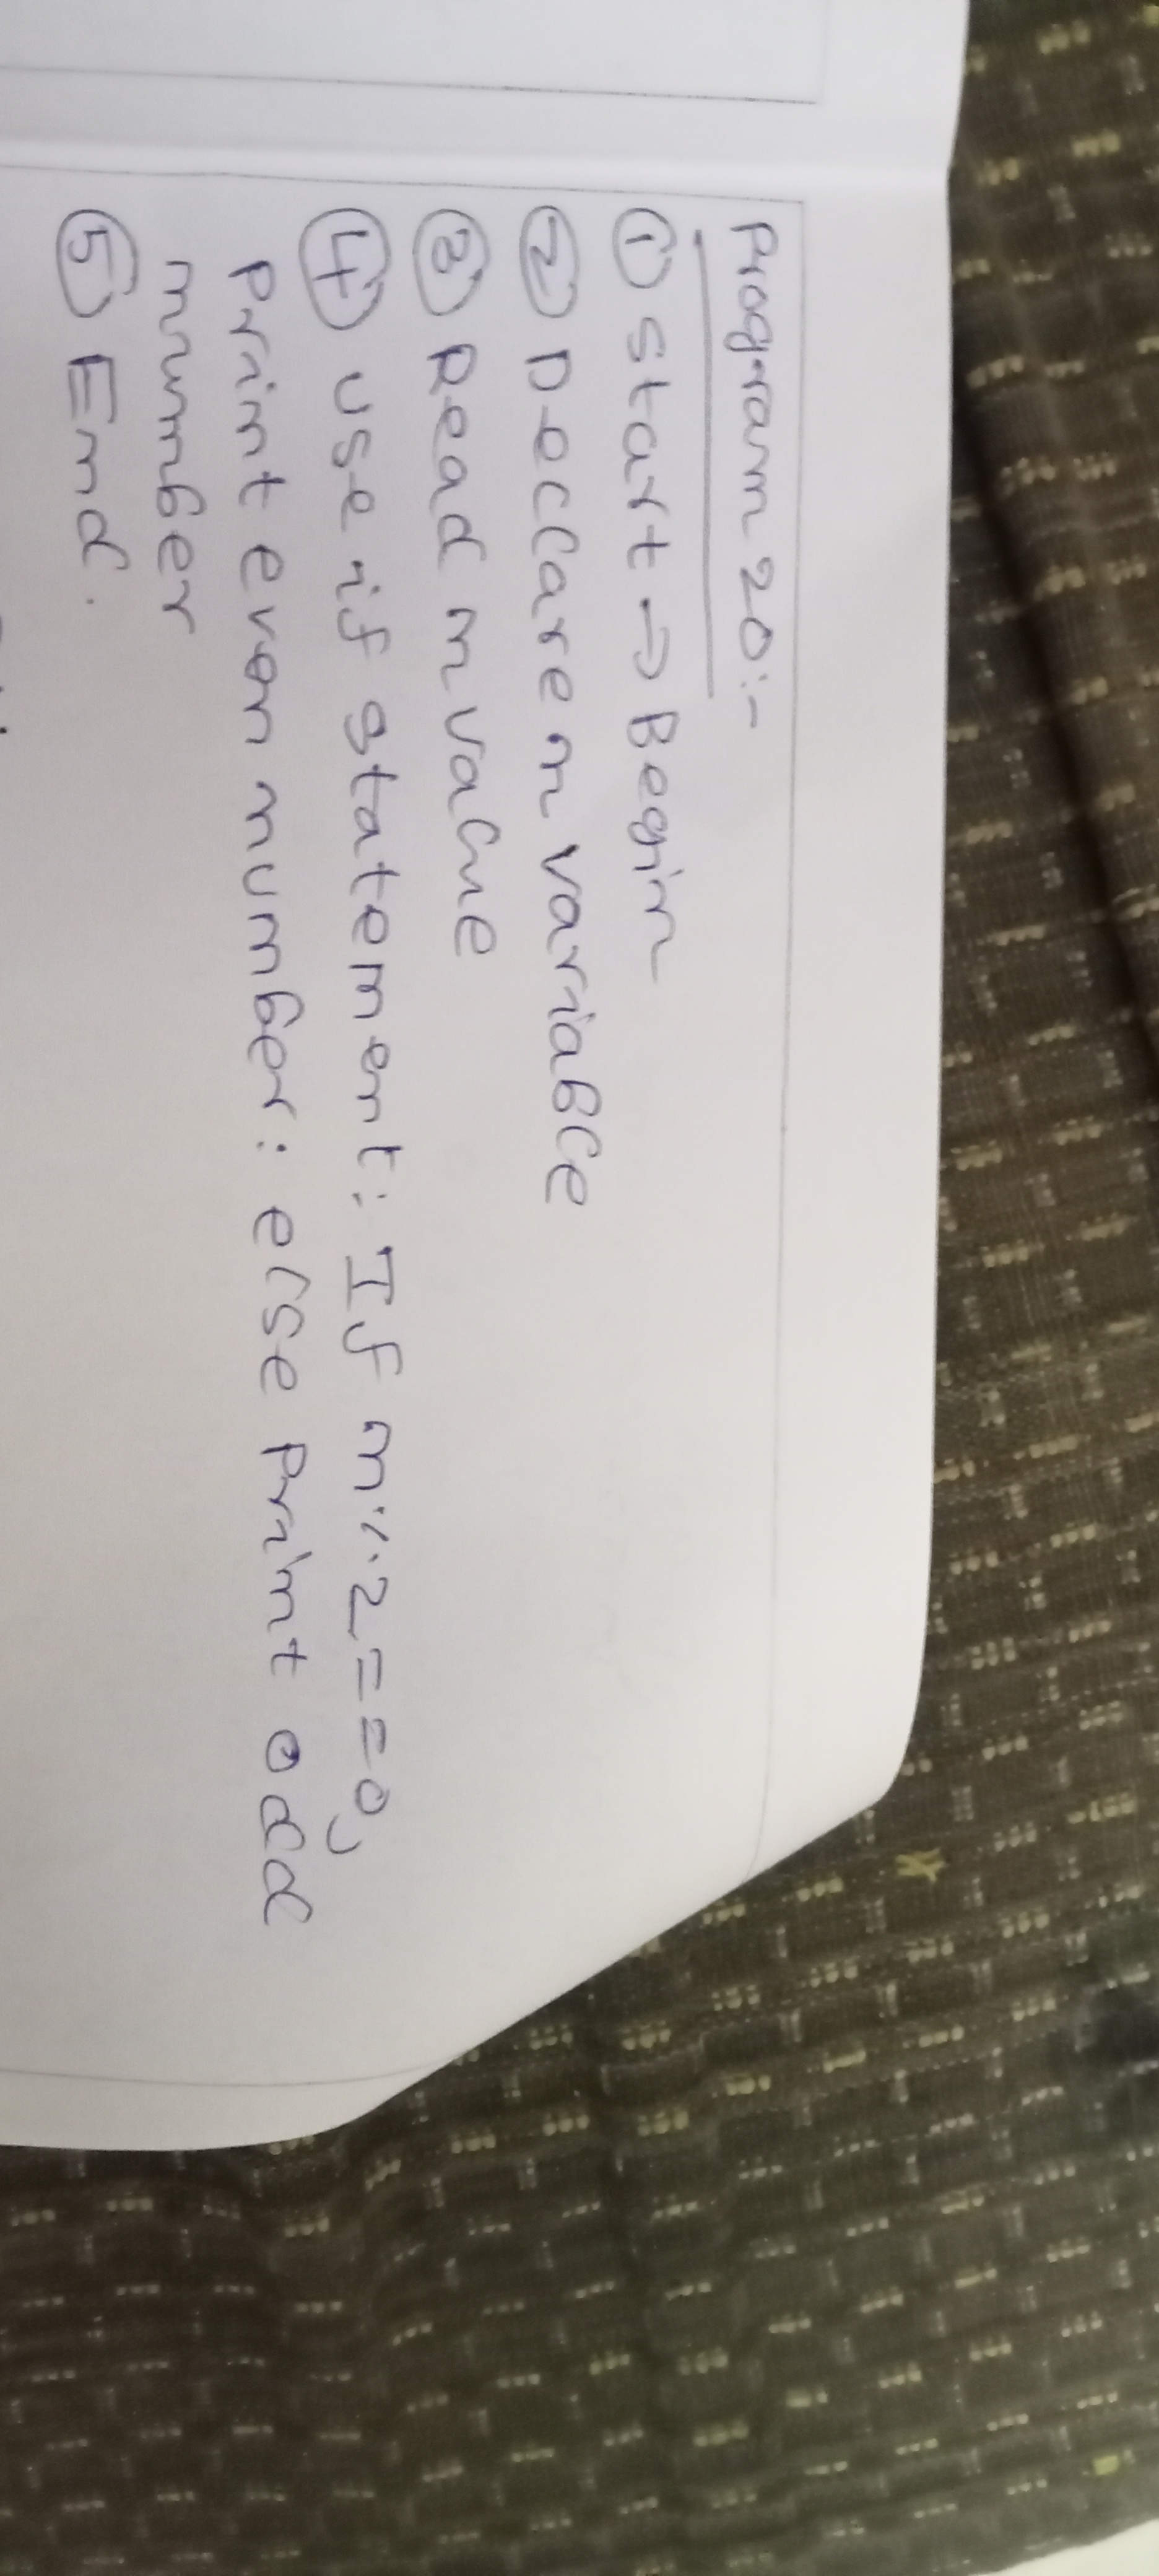 Program 20:-
① Start → Begin
② Declare n variable
③ Read n value
④ use if statement: If n%2==0,
Print even number: else Print odd
number
⑤ End.